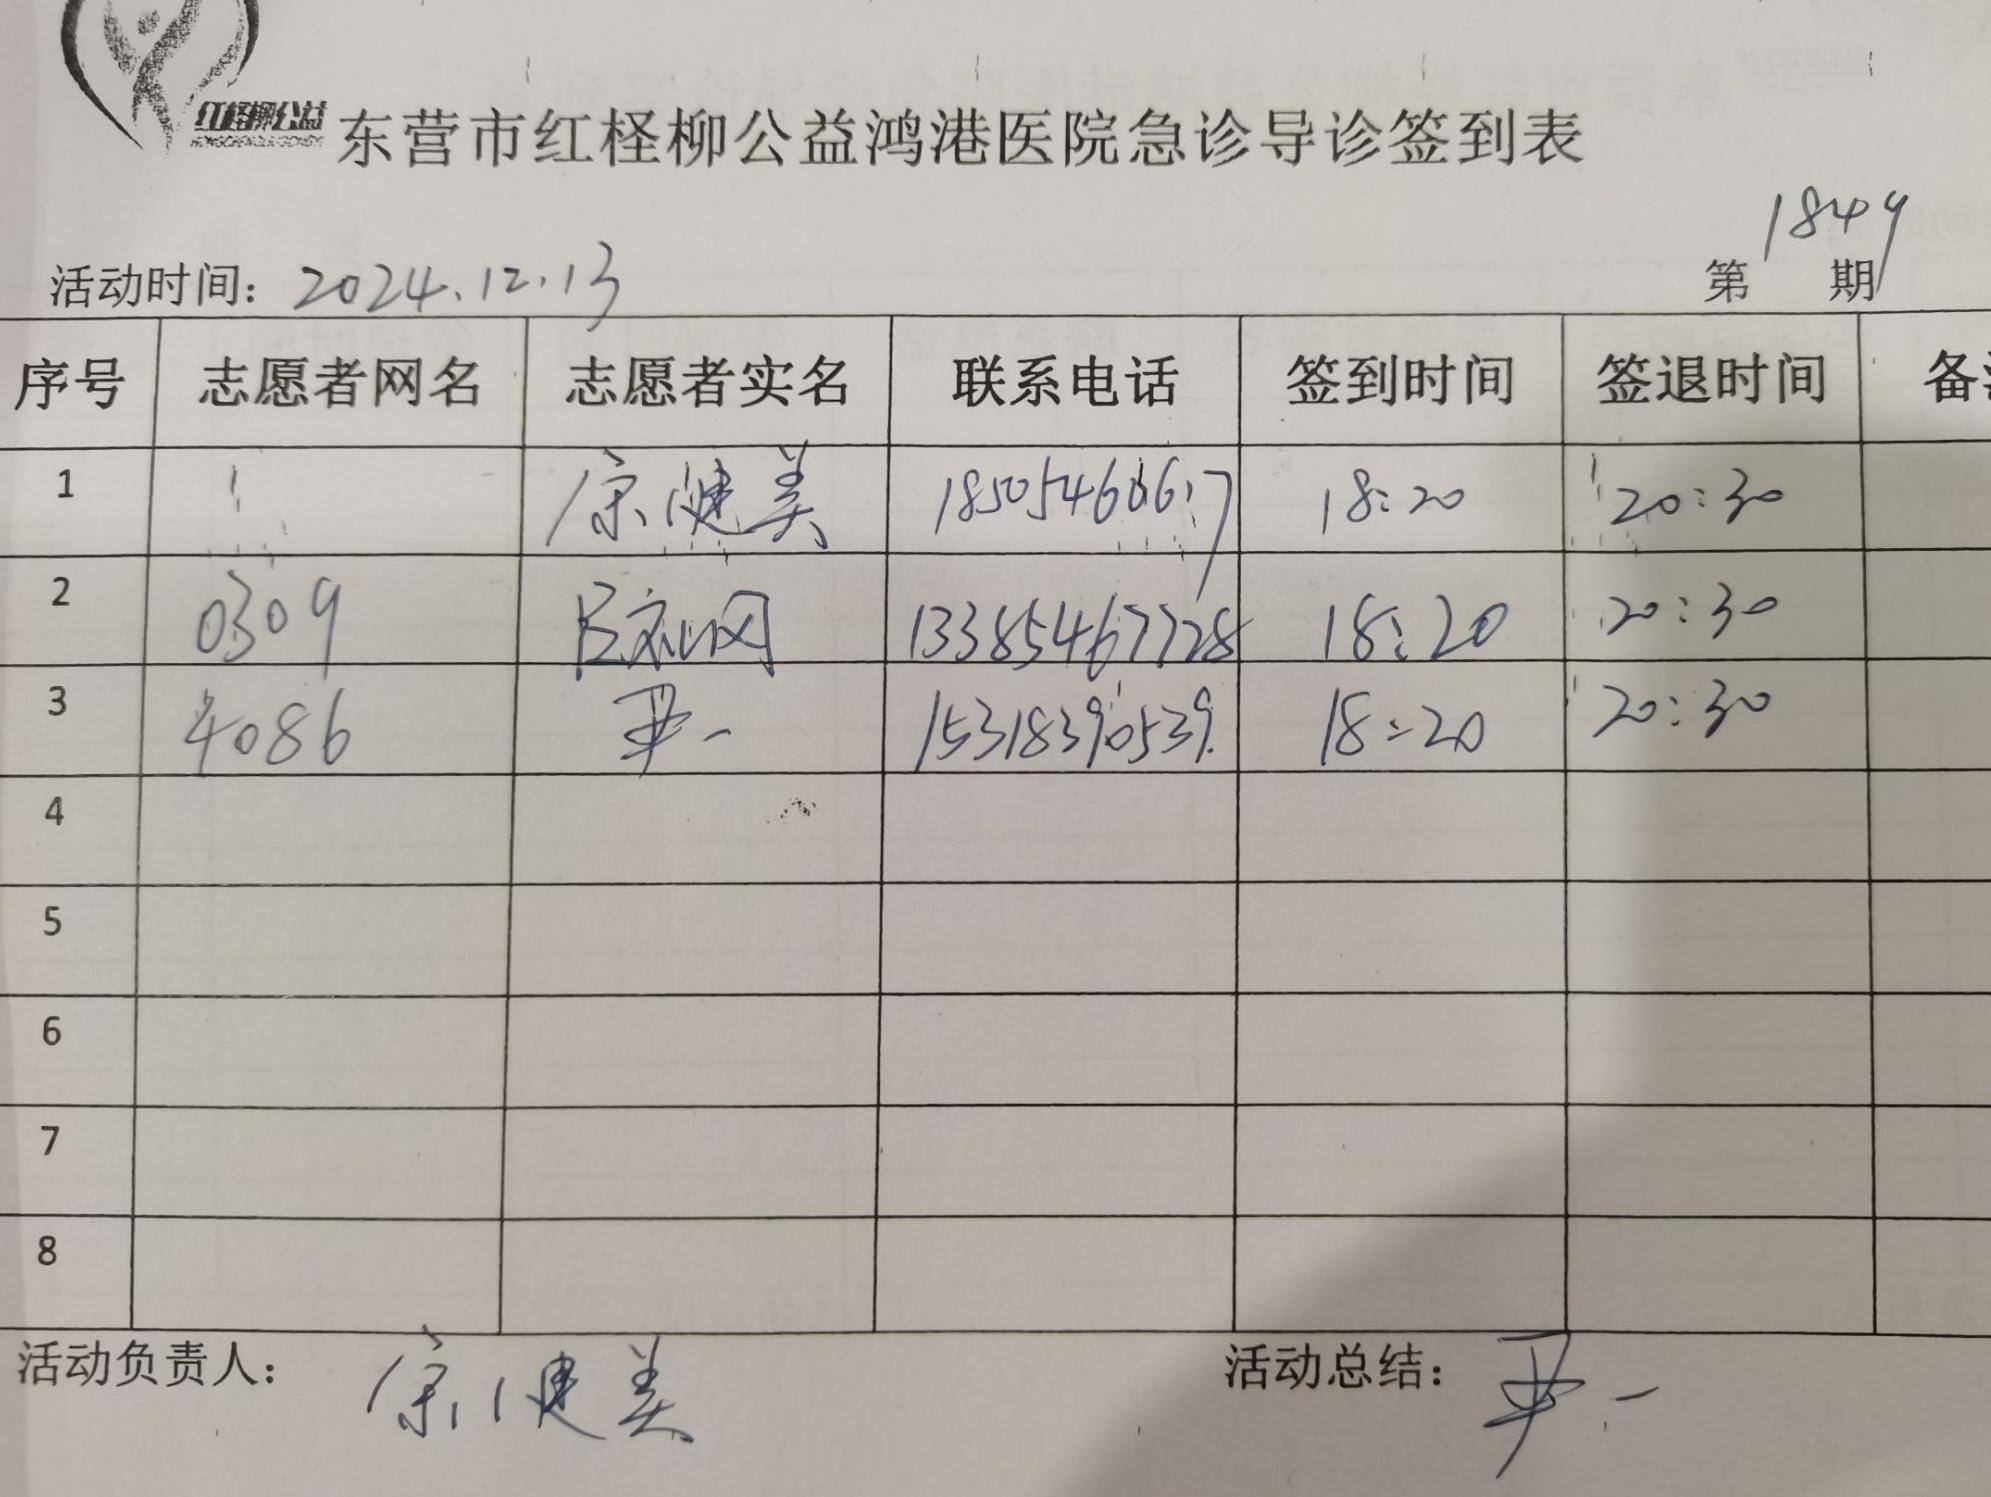 红柽柳公益
东营市红柽柳公益鸿港医院急诊导诊签到表
活动时间： 2024.12.13 第 1849 期
序号 志愿者网名 志愿者实名 联系电话 签到时间 签退时间 备
1 健美 18:20 20:30
2 0309 13385467728 18:20 20:30
3 4086 15318390539. 18:20 20:30
4
5
6
7
8
活动负责人： 健美 活动总结：